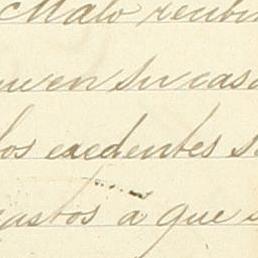 Malo recibi
en su casa
los exedentes s
gastos a que s